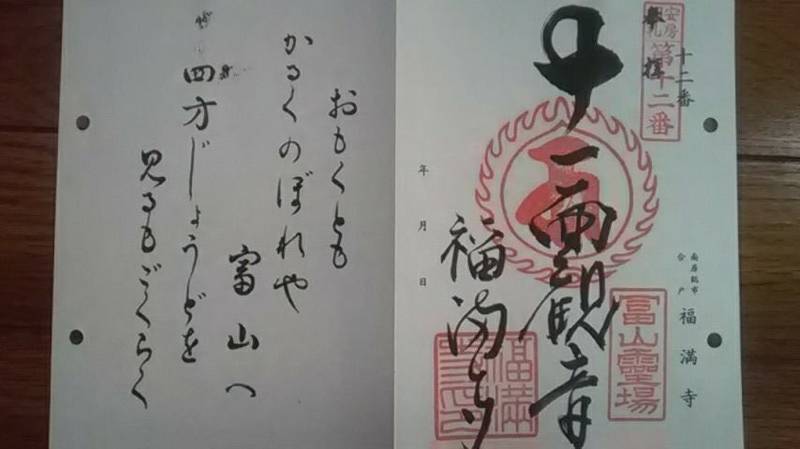 十二番
安房
第十二番
奉拝
南房総市
合戸
福満寺
冨山靈場
十一面観音
福満寺
福満
年 月 日
おもくとも
かるくのぼれや
富山へ
四方じょうどを
見るもごくらく